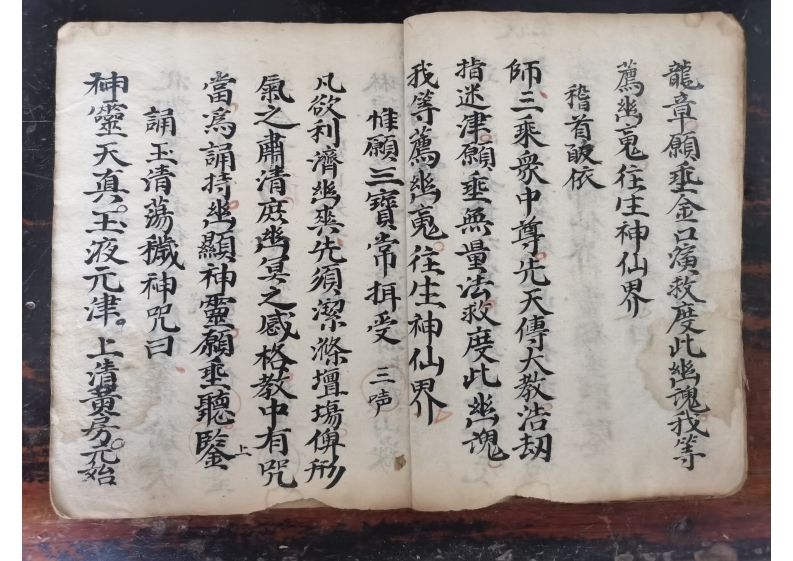 龍章願垂金口演救度此幽魂我等
薦幽䰟往生神仙界
稽首皈依
師三乘衆中尊先天傳大教浩劫
指迷津願垂無量法救度此幽魂
我等薦幽䰟往生神仙界
惟願三寶常摂受 三吽
凡欲利濟幽㚑先須潔滌壇場俾形
氣之肅清庶幽冥之感格教中有咒
當爲誦持幽顯神靈願垂聽鑒 上
誦玉清蕩穢神咒曰
神靈天真。玉液元津。上清黃房。元始